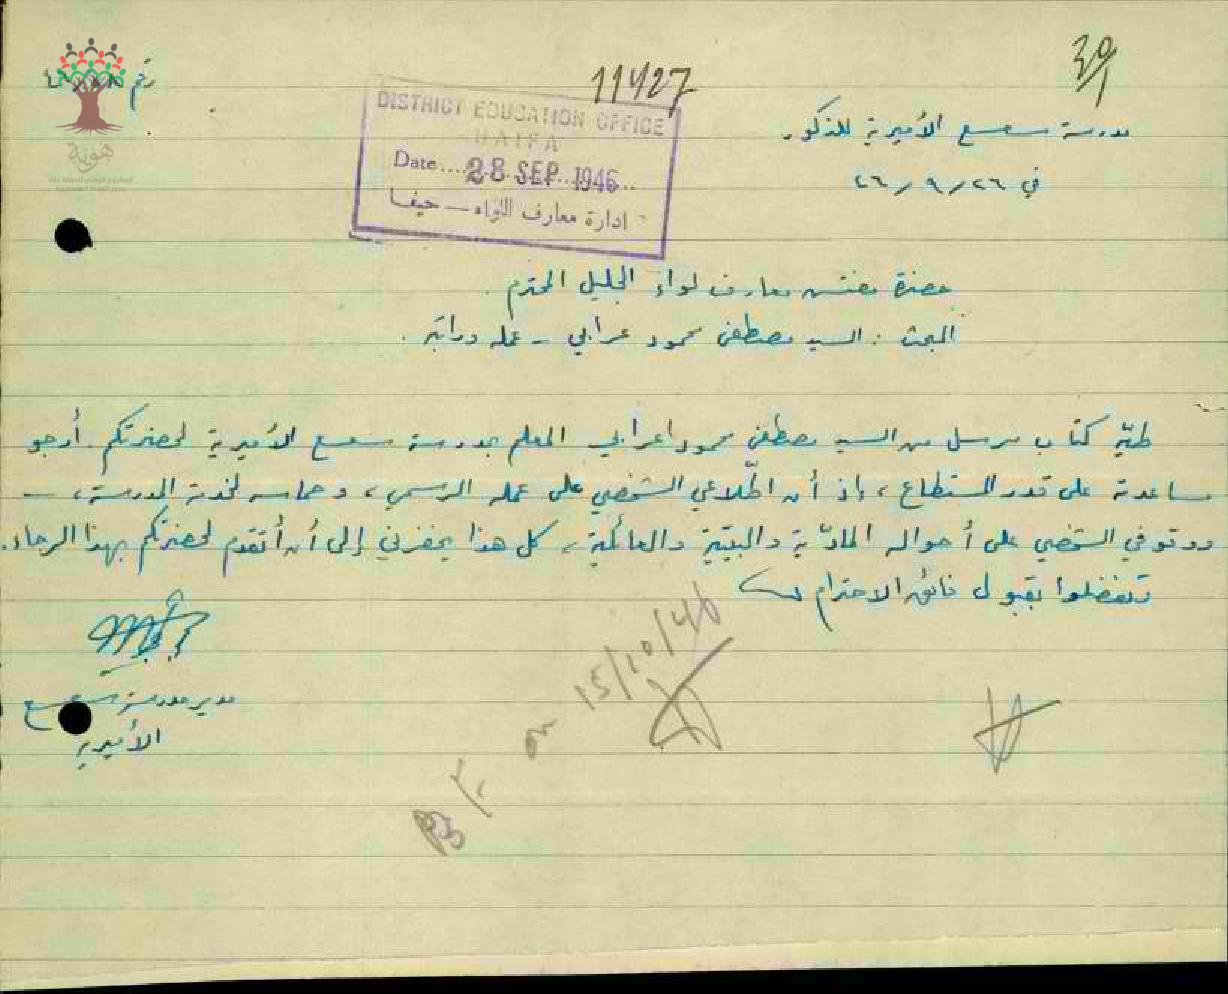 11427
مدرسة سعسع الأميرية للذكور
في ٢٦ / ٩ / ٤٦
رقم
هوية
DISTRICT EDUCATION OFFICE
HAIFA
Date 28 SEP 1946
ادارة معارف اللواء – حيفا
حضرة مفتش معارف لواء الجليل المحترم .
المبحث : السيد مصطفى محمود عرابي – عمله وراتبه .
طيّه كتاب مرسل من السيد مصطفى محمود اعرابي المعلم بمدرسة سعسع الأميرية لحضرتكم . أرجو
مساعدته على قدر المستطاع ، إذ أن اطّلاعي الشخصي على عمله الرسمي ، وحماسه لخدمة المدرسة ، –
ووقوفي الشخصي على أحواله المادّية والبيتية والعائلية ، كل هذا يحفزني إلى أن أتقدم لحضرتكم بهذا الرجاء .
وتفضلوا بقبول فائق الاحترام
مدير مدرسة سعسع
الأميرية
B F. on 15/10/46